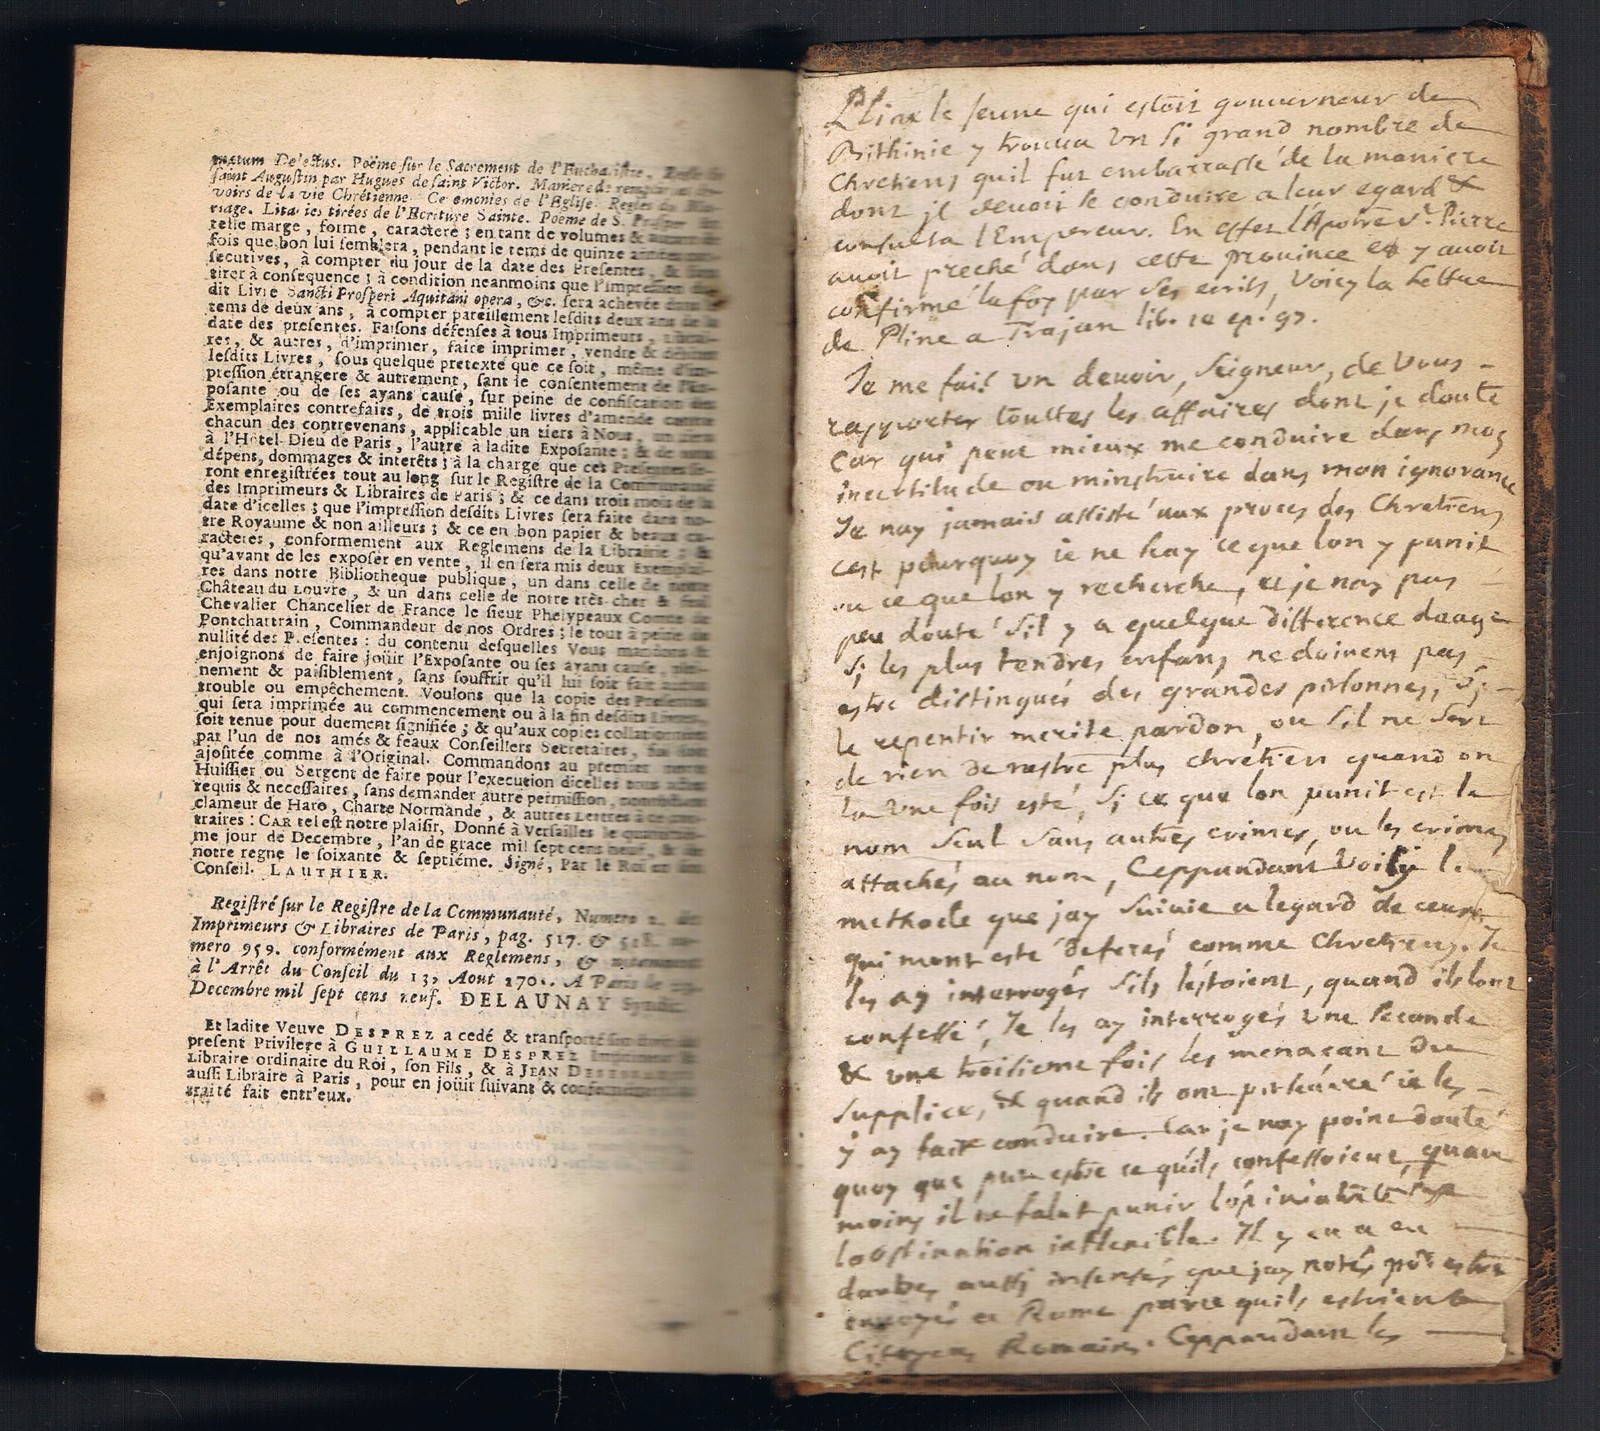 De'ectus. Poëme sur le Sacrement de l'Eucharistie,
saint Augustin par Hugues de saint Victor. Maniere de
voirs de la vie Chrétienne. Ceremonies de l'Eglise. Regles du Ma-
riage. Litanies tirées de l'Ecriture Sainte. Poëme de S. Prosper
telle marge, forme, caractere; en tant de volumes &
fois que bon lui semblera, pendant le tems de quinze années con-
secutives, à compter du jour de la date des Presentes, & sans
tirer à consequence; à condition neanmoins que l'impression du-
dit Livre Sancti Prosperi Aquitani opera, &c. sera achevée dans le
tems de deux ans, à compter pareillement lesdits deux ans de la
date des presentes. Faisons défenses à tous Imprimeurs, Librai-
res, & autres, d'imprimer, faire imprimer, vendre & debiter
lesdits Livres, sous quelque pretexte que ce soit, même d'im-
pression étrangere & autrement, sant le consentement de l'Ex-
posante ou de ses ayans cause, sur peine de confiscation des
Exemplaires contrefaits, de trois mille livres d'amende contre
chacun des contrevenans, applicable un tiers à Nous, un tiers
à l'Hôtel-Dieu de Paris, l'autre à ladite Exposante; & de tous
dépens, dommages & interêts; à la charge que ces Presentes se-
ront enregistrées tout au long sur le Registre de la Communauté
des Imprimeurs & Libraires de Paris; & ce dans trois mois de la
date d'icelles; que l'impression desdits Livres sera faite dans no-
tre Royaume & non ailleurs; & ce en bon papier & beaux ca-
racteres, conformement aux Reglemens de la Librairie; &
qu'avant de les exposer en vente, il en sera mis deux Exemplai-
res dans notre Bibliotheque publique, un dans celle de notre
Château du Louvre, & un dans celle de notre très-cher & feal
Chevalier Chancelier de France le sieur Phelypeaux Comte de
Pontchartrain, Commandeur de nos Ordres; le tout à peine de
nullité des Presentes: du contenu desquelles Vous mandons &
enjoignons de faire joüir l'Exposante ou ses ayans cause, plei-
nement & paisiblement, sans souffrir qu'il lui soit fait aucun
trouble ou empêchement. Voulons que la copie des Presentes
qui sera imprimée au commencement ou à la fin desdits Livres,
soit tenue pour duement signifiée; & qu'aux copies collationnées
par l'un de nos amés & feaux Conseillers Secretaires, foi soit
ajoûtée comme à l'Original. Commandons au premier notre
Huissier ou Sergent de faire pour l'execution dicelles tous actes
requis & necessaires, sans demander autre permission, nonobstant
clameur de Haro, Charte Normande, & autres Lettres à ce con-
traires: CAR tel est notre plaisir, Donné à Versailles le
me jour de Decembre, l'an de grace mil sept cens neuf, & de
notre regne le soixante & septiéme. Signé, Par le Roi en son
Conseil. LAUTHIER.
Registré sur le Registre de la Communauté, Numero 2. des
Imprimeurs & Libraires de Paris, pag. 517. & 518. nu-
mero 959. conformément aux Reglemens, & notamment
à l'Arrêt du Conseil du 13, Aout 170.. A Paris le
Decembre mil sept cens neuf. DELAUNAY Syndic.
Et ladite Veuve DESPREZ a cedé & transporté son droit du
present Privilege à GUILLAUME DESPREZ Imprimeur &
Libraire ordinaire du Roi, son Fils, & à JEAN DESESSARTS
aussi Libraire à Paris, pour en joüir suivant & conformément au
traité fait entr'eux.
Pline le Jeune qui estoit gouverneur de
Bithinie y trouva un si grand nombre de
Chretiens quil fut embarrassé de la maniere
dont jl devoit se conduire a leur egard &
consulta l'Empereur. En effet l'Apotre St Pierre
avoit preché dans cette province et y avoit
confirmé la foy par ses ecrits, Voicy la lettre
de Pline a Trajan lib. 10 ep. 97.
Je me fais un devoir, Seigneur, de vous
rapporter touttes les affaires dont je doute
Car qui peut mieux me conduire dans mes
incertitude ou minstruire dans mon ignorance
Je nay jamais assisté aux proces des Chretiens
cest pourquoy ie ne scay ce que lon y punit
ou ce que lon y recherche, et je nay pas
peu douté sil y a quelque difference daage
si les plus tendres enfans ne doivent pas
estre distingués des grandes personnes, si
le repentir merite pardon, ou sil ne sert
de rien de nestre plus chrétien quand on
la une fois esté, si ce que lon punit est le
nom seul sans autres crimes, ou les crimes
attachés au nom, Ceppandant voily la
methode que jay suivie a legard de ceux
qui mont esté deferés comme Chretiens. Je
les ay interrogés sils lestoient, quand ils lont
confessé, Je les ay interrogés une seconde
& une troisieme fois les menaçant du
supplice, & quand ils ont perseveré ie les
y ay fait conduire. Car je nay point douté
quoy que put estre ce quils confessoient, quau
moins il ne falut punir lopiniatreté
lobstination inflexible. Il y en a eu
dautres aussi insensés que jay notés por estre
envoyés a Rome parce quils estoient
Citoyens Romains. Ceppandant les